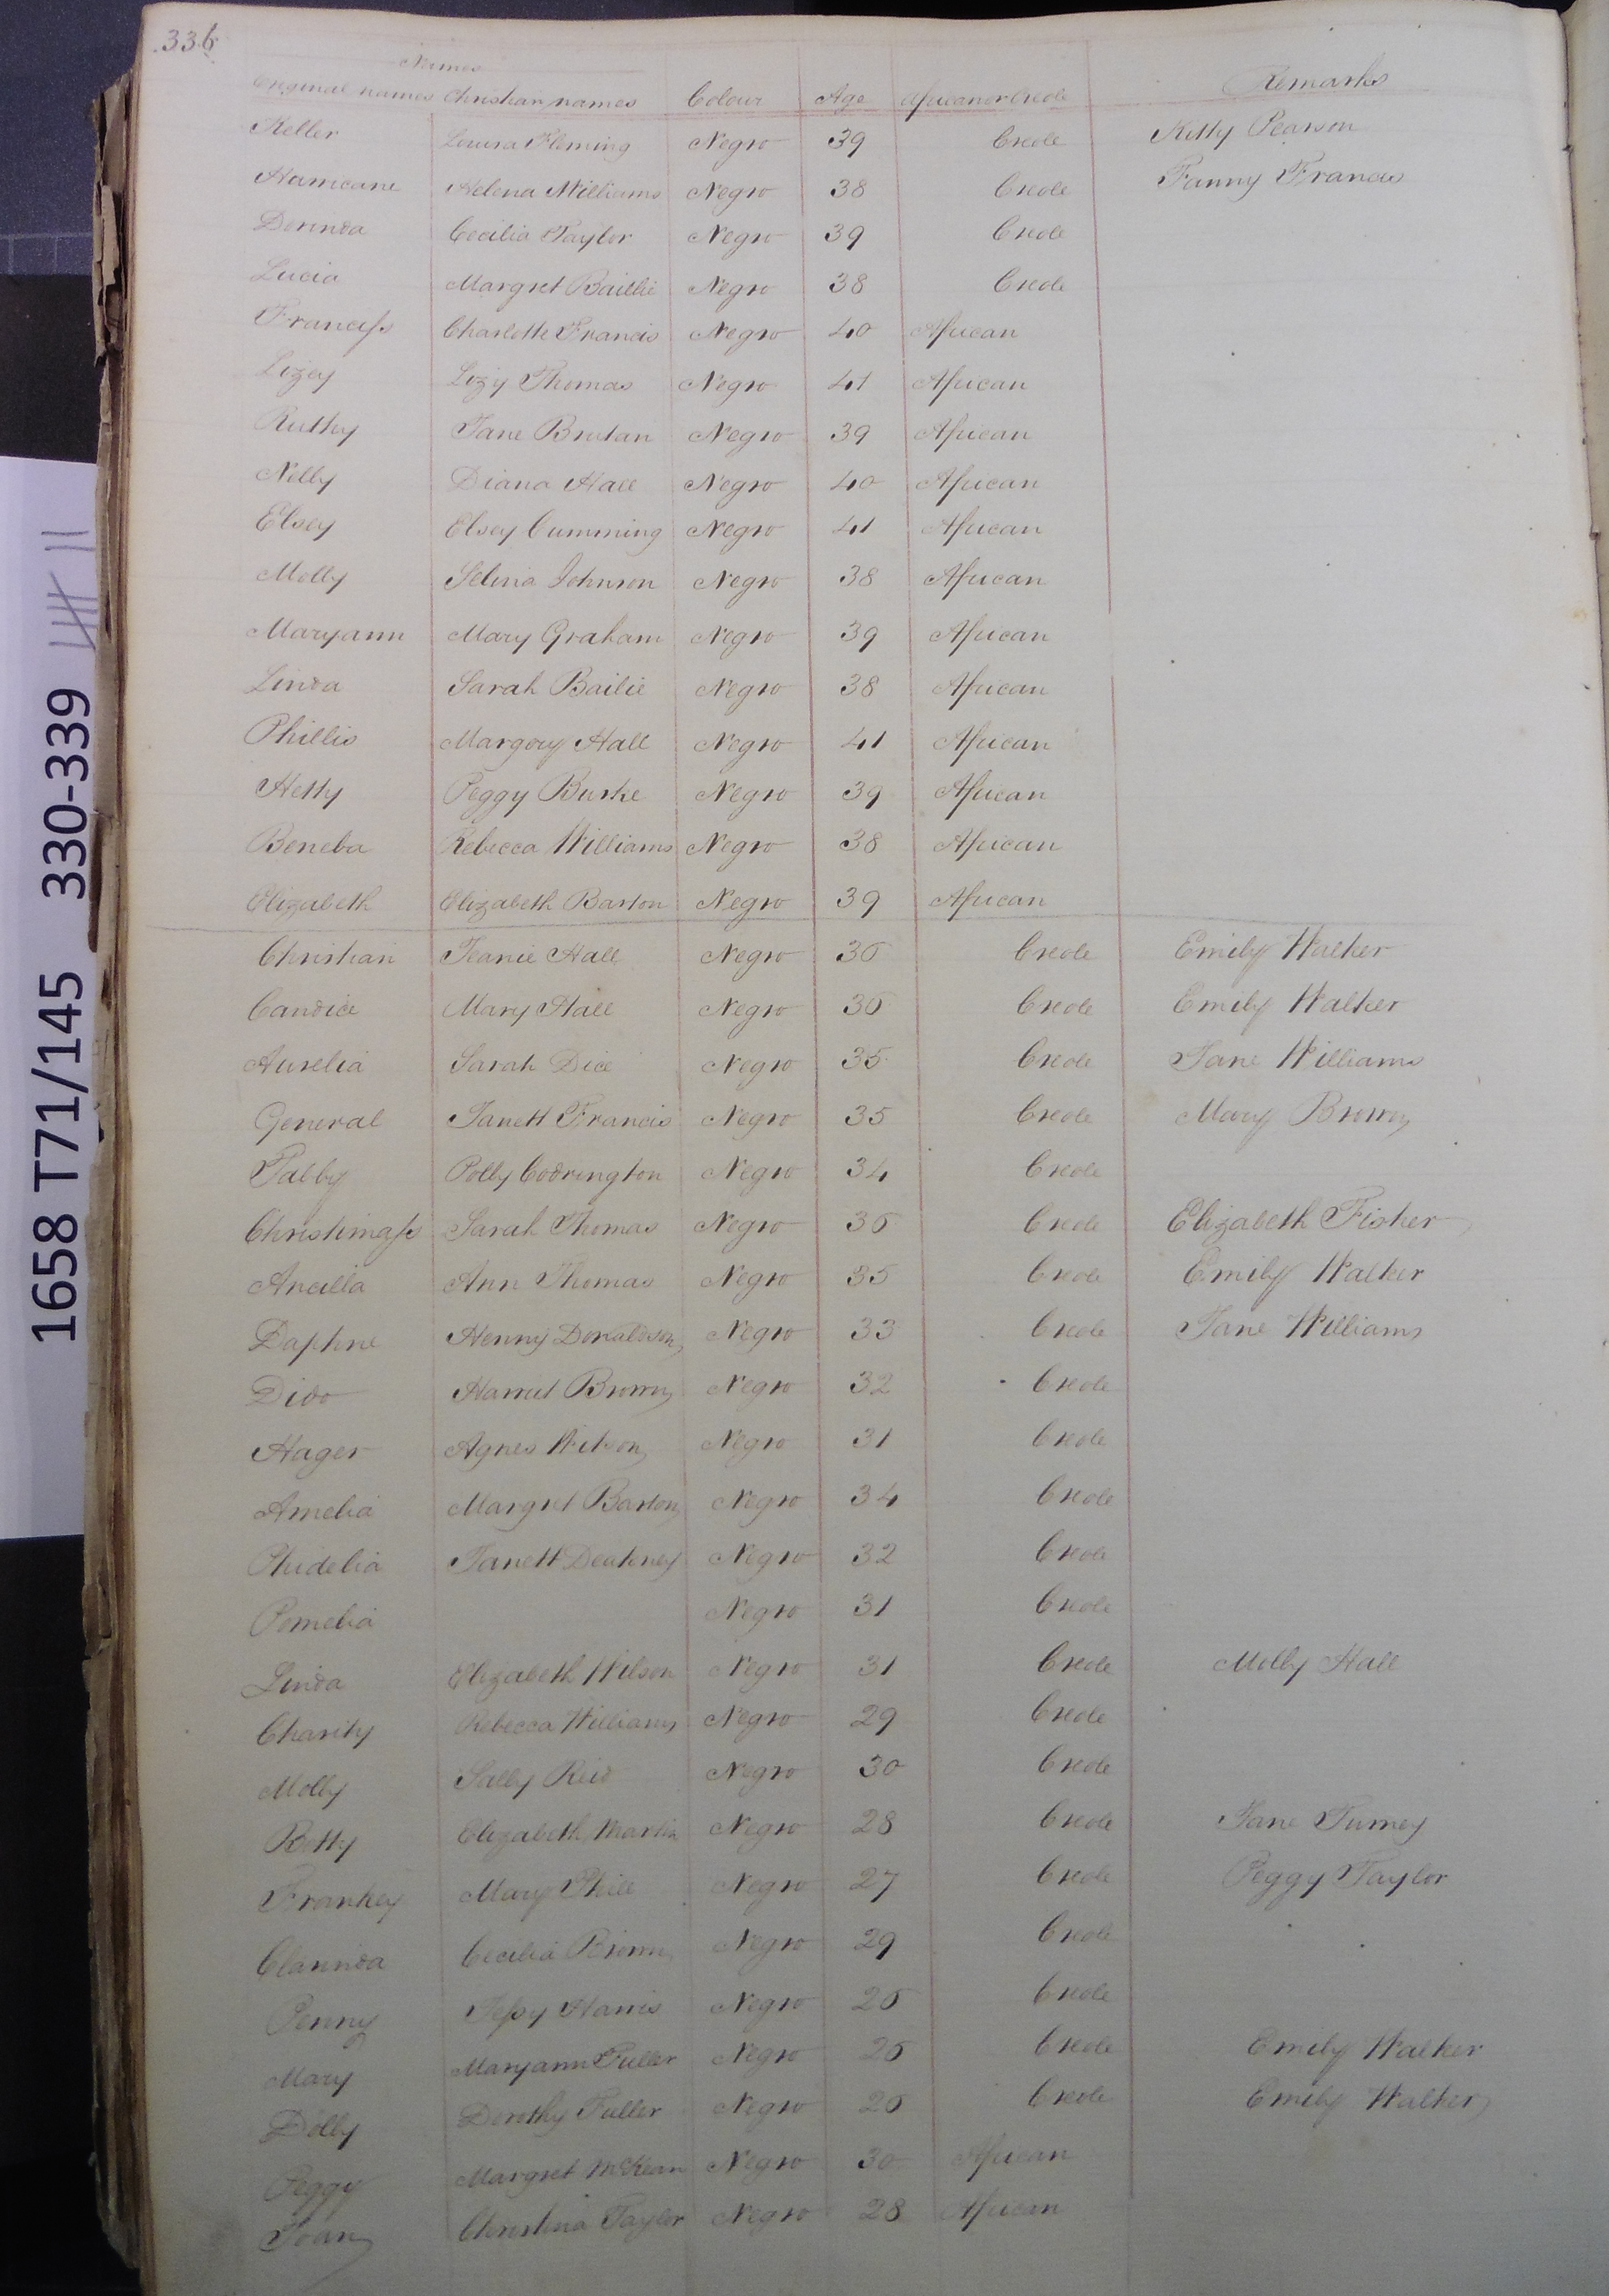 336
Names
Original names Christian names Colour Age African or Creole Remarks
Keller Louisa Fleming Negro 39 Creole Kitty Pearson
Hurricane Helena Williams Negro 38 Creole Fanny Francis
Dorinda Cecilia Taylor Negro 39 Creole
Lucia Margret Baillie Negro 38 Creole
Franciss Charlotte Francis Negro 40 African
Lizey Lizy Thomas Negro 41 African
Ruthy Jane Brutan Negro 39 African
Nelly Diana Hall Negro 40 African
Elsey Elsey Cumming Negro 41 African
Molly Selina Johnson Negro 38 African
Maryann Mary Graham Negro 39 African
Linda Sarah Bailie Negro 38 African
Phillis Margory Hall Negro 41 African
Hetty Peggy Burke Negro 39 African
Beneba Rebecca Williams Negro 38 African
Elizabeth Elizabeth Barton Negro 39 African
Christian Jeanie Hall Negro 36 Creole Emily Walker
Candice Mary Hall Negro 36 Creole Emily Walker
Aurelia Sarah Dice Negro 35 Creole Jane Williams
General Janett Francis Negro 35 Creole Mary Brown
Tabby Polly Codrington Negro 34 Creole
Christmass Sarah Thomas Negro 36 Creole Elizabeth Fisher
Ancilla Ann Thomas Negro 35 Creole Emily Walker
Daphne Henny Donaldson Negro 33 Creole Jane Williams
Dido Harriet Brown Negro 32 Creole
Hager Agnes Wilson Negro 31 Creole
Amelia Margret Barton Negro 34 Creole
Phidelia Janett Negro 32 Creole
Pomelia Negro 31 Creole
Linda Elizabeth Wilson Negro 31 Creole Molly Hall
Charity Rebecca Williams Negro 29 Creole
Molly Sally Reid Negro 30 Creole
Betty Elizabeth Martin Negro 28 Creole Jane Turney
Frankey Mary Phill Negro 27 Creole Peggy Taylor
Clarinda Cecilia Brown Negro 29 Creole
Penny Jessy Harris Negro 26 Creole
Mary Maryann Fuller Negro 26 Creole Emily Walker
Dolly Dorothy Fuller Negro 26 Creole Emily Walker
Peggy Margret McKean Negro 30 African
Joan Christina Taylor Negro 28 African
1658 T71/145 330-339